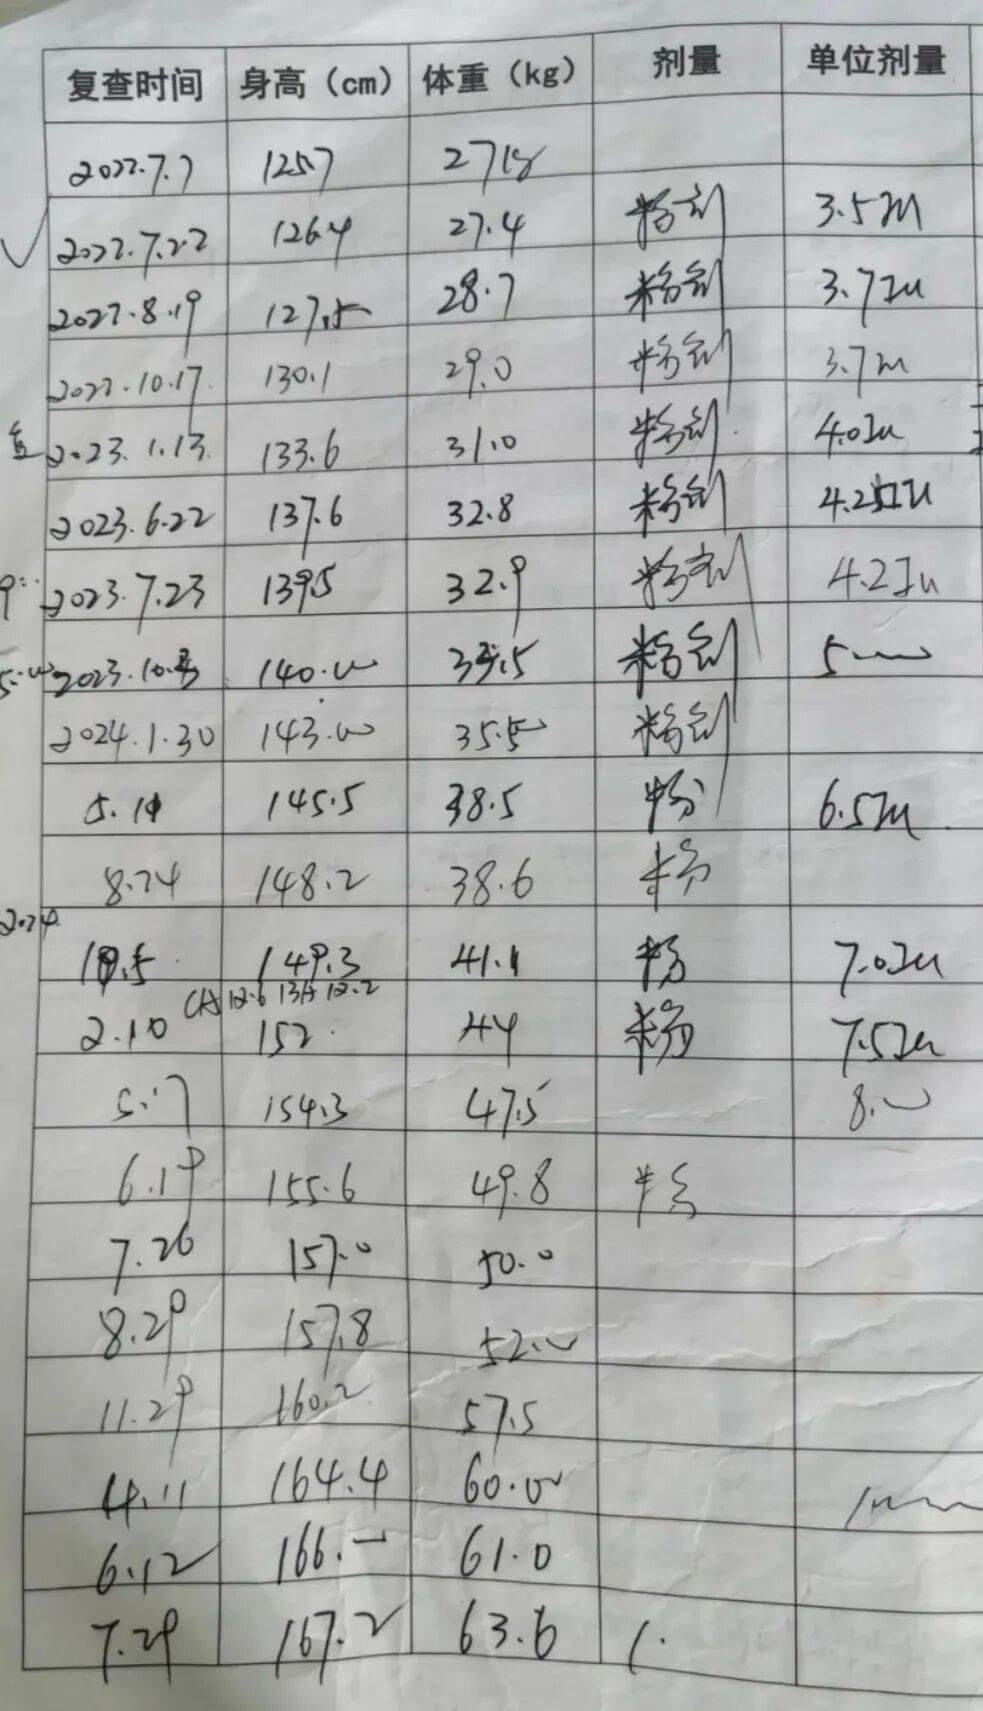 复查时间 身高（cm） 体重（kg） 剂量 单位剂量
2022.7.7 125.7 27kg
2022.7.22 126.4 27.4 粉剂 3.5IU
2022.8.19 127.5 28.7 粉剂 3.7IU
2022.10.17 130.1 29.0 粉剂 3.7IU
2023.1.13 133.6 31.0 粉剂 4.0IU
2023.6.22 137.6 32.8 粉剂
2023.7.23 139.5 32.9 粉剂 4.2IU
2023.10. 140.0 粉剂 5
2024.1.30 143.0 35.5 粉剂
145.5 38.5 粉 6.5IU
8.24 148.2 38.6 粉
2024
149.3 41.1 粉 7.0IU
CA 12.6 BA 12.2
2.10 152 44 粉 7.5IU
5.17 154.3 47.5 8.0
6.19 155.6 49.8 粉
7.26 157.0 50.0
8.29 157.8 52.0
11.29 160.2 57.5
4.11 164.4 60.0
6.12 166.- 61.0
7.29 167.2 63.6